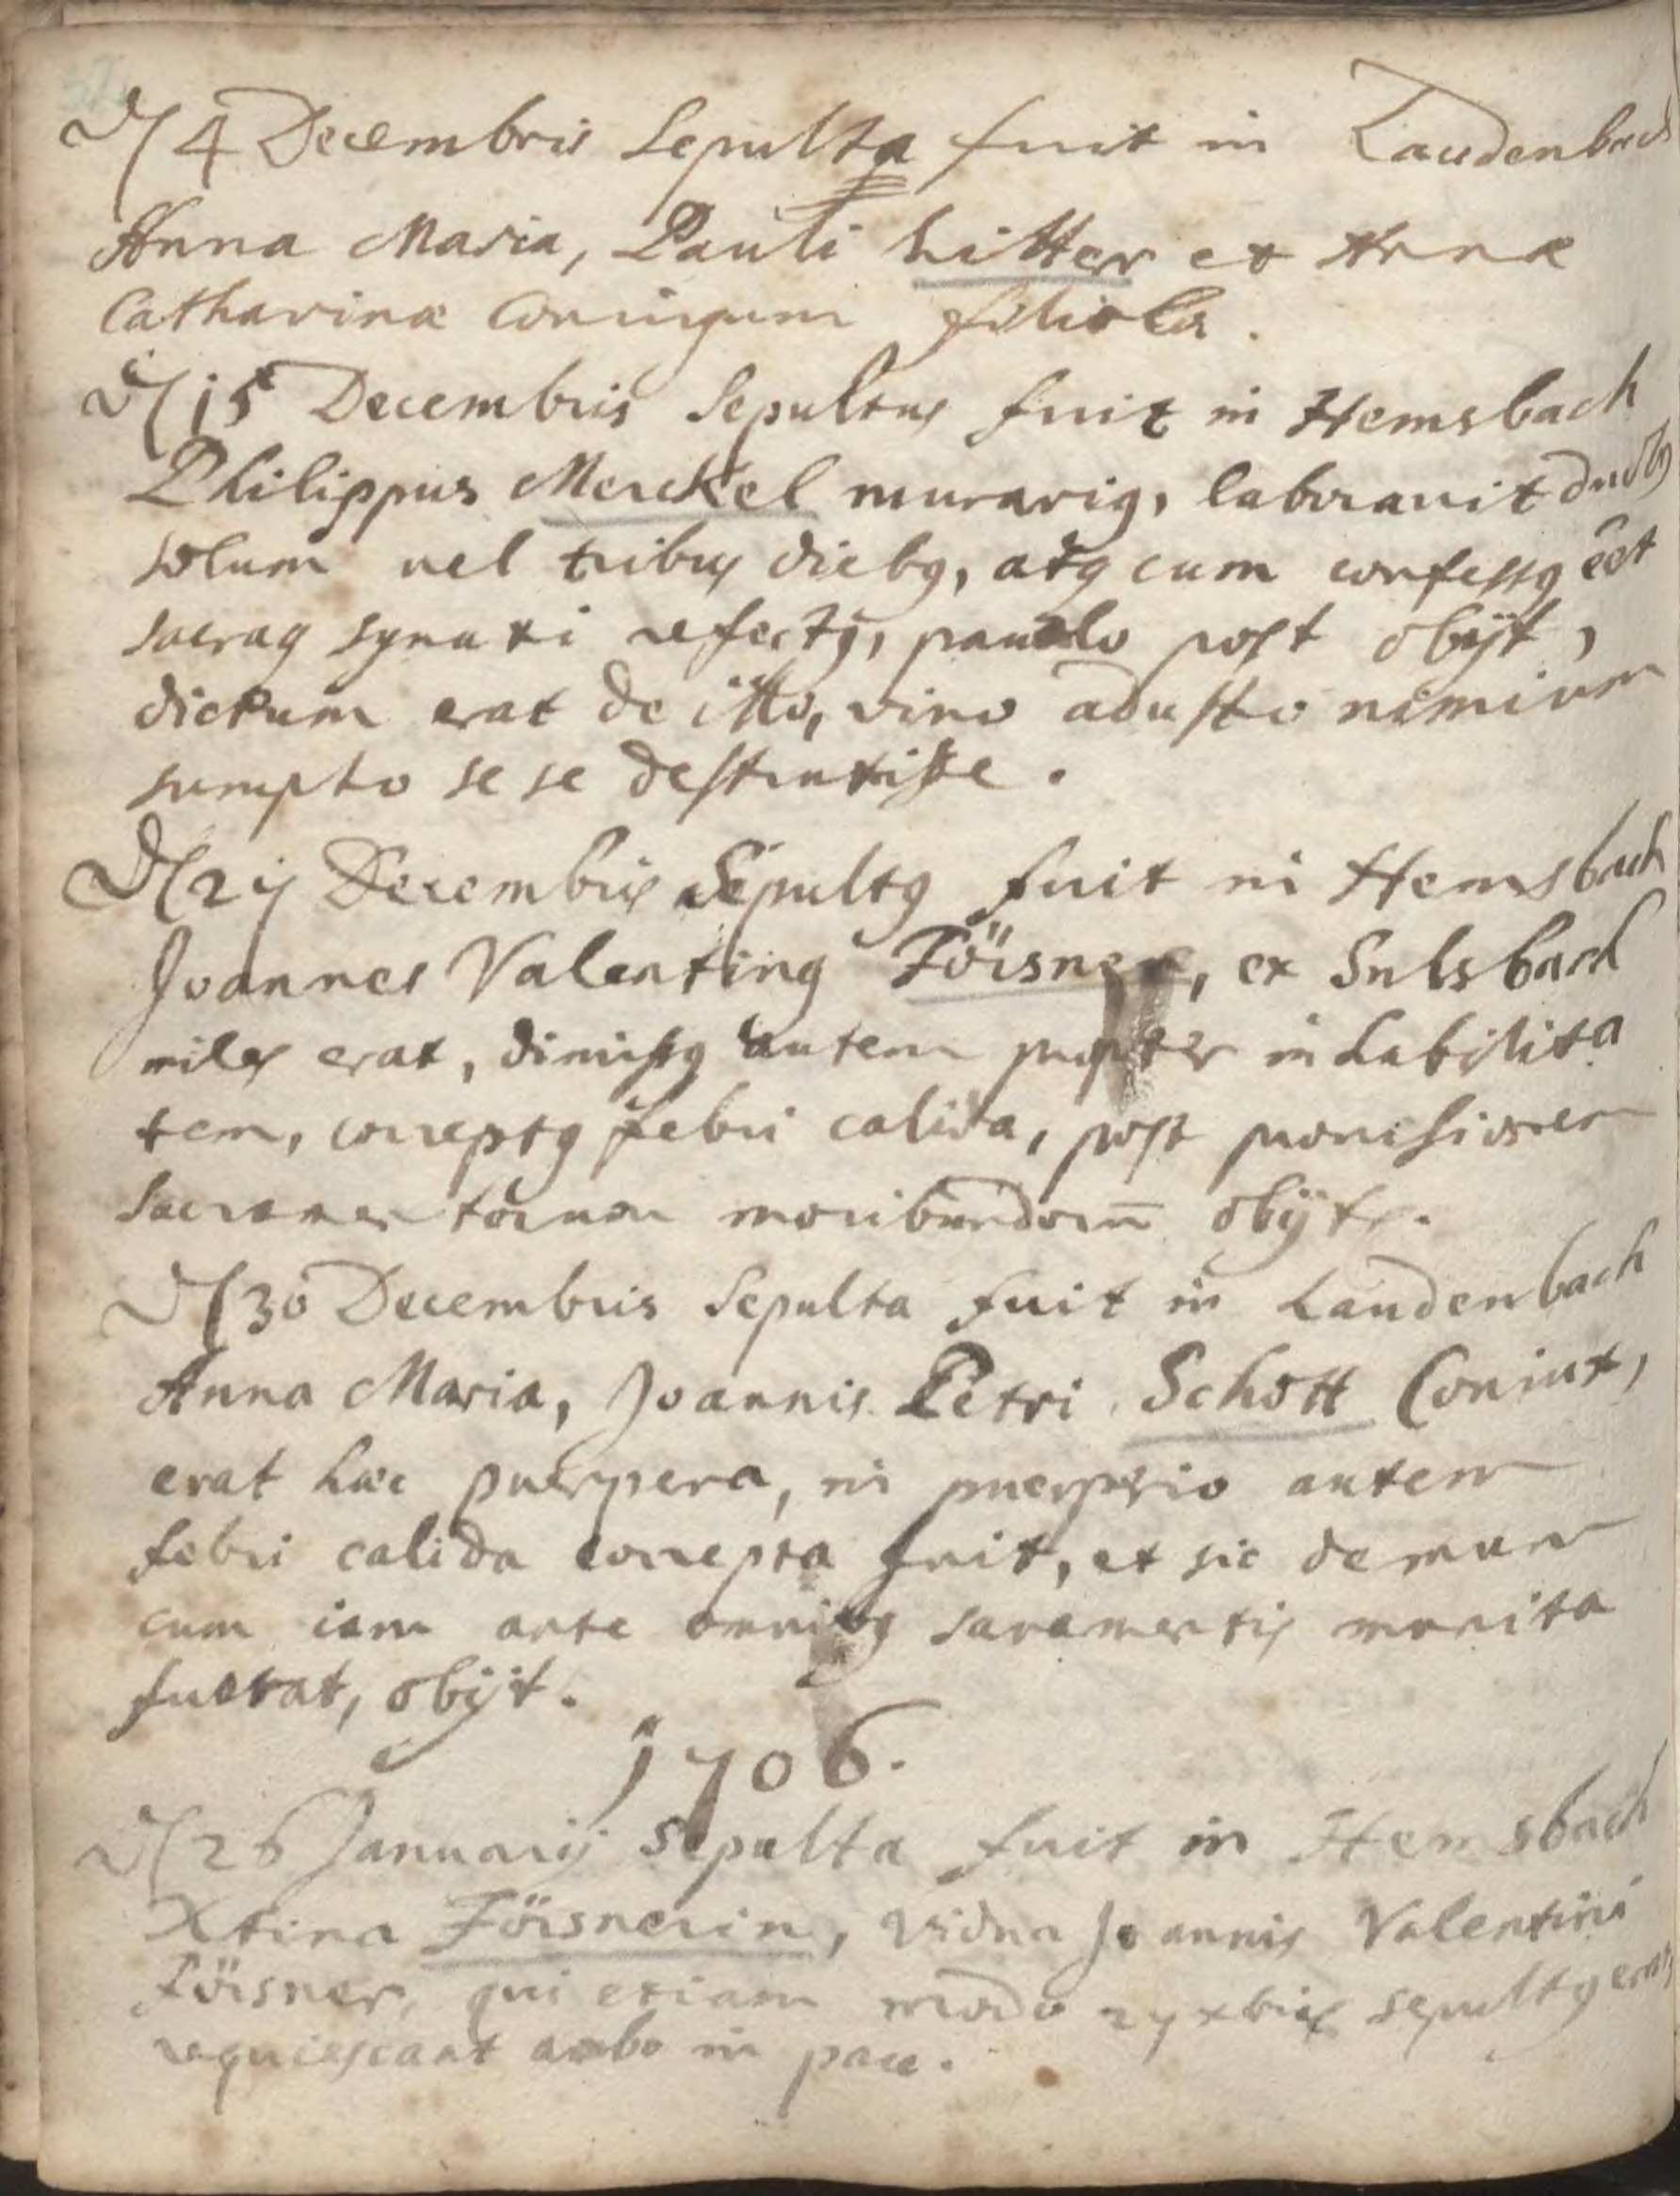 4 Decembris Sepulta fuit in Laudenbach
Anna Maria, Pauli hitter et Annæ
Catharinæ Coniugum filiola.
15 Decembris Sepultus fuit in Hemsbach
Philippus Merckel murariꝰ, laborauit duobꝰ
solum uel tribus diebꝰ, atqꝫ cum confessꝰ eēt
sacraqꝫ synaxi refectꝰ, paulo post obijt,
dictum erat de illo, vino adusto nimium
sumpto se se destruxisse.
27 Decembris Sepultꝰ fuit in Hemsbach
Joannes Valentinꝰ Försner, ex Sulsbach
miles erat, dimissꝰ autem propter inhabilita
tem, correptꝰ febri calida, post prouisionem
Sacramentorum moribundorū obijt.
30 Decembris Sepulta fuit in Laudenbach
Anna Maria, Joannis Petri Schott Coniux,
erat hæc puerpera, in puerperio autem
febri calida correpta fuit, et sic demum
cum iam ante omnibꝰ sacramentis munita
fuerat, obijt.
1706.
26 Januarij Sepulta fuit in Hemsbach
Xtina Försnerin, vidua Joannis Valentini
Försner, qui etiam modo 27 xbris sepultꝰ erat,
requiescant ambo in pace.